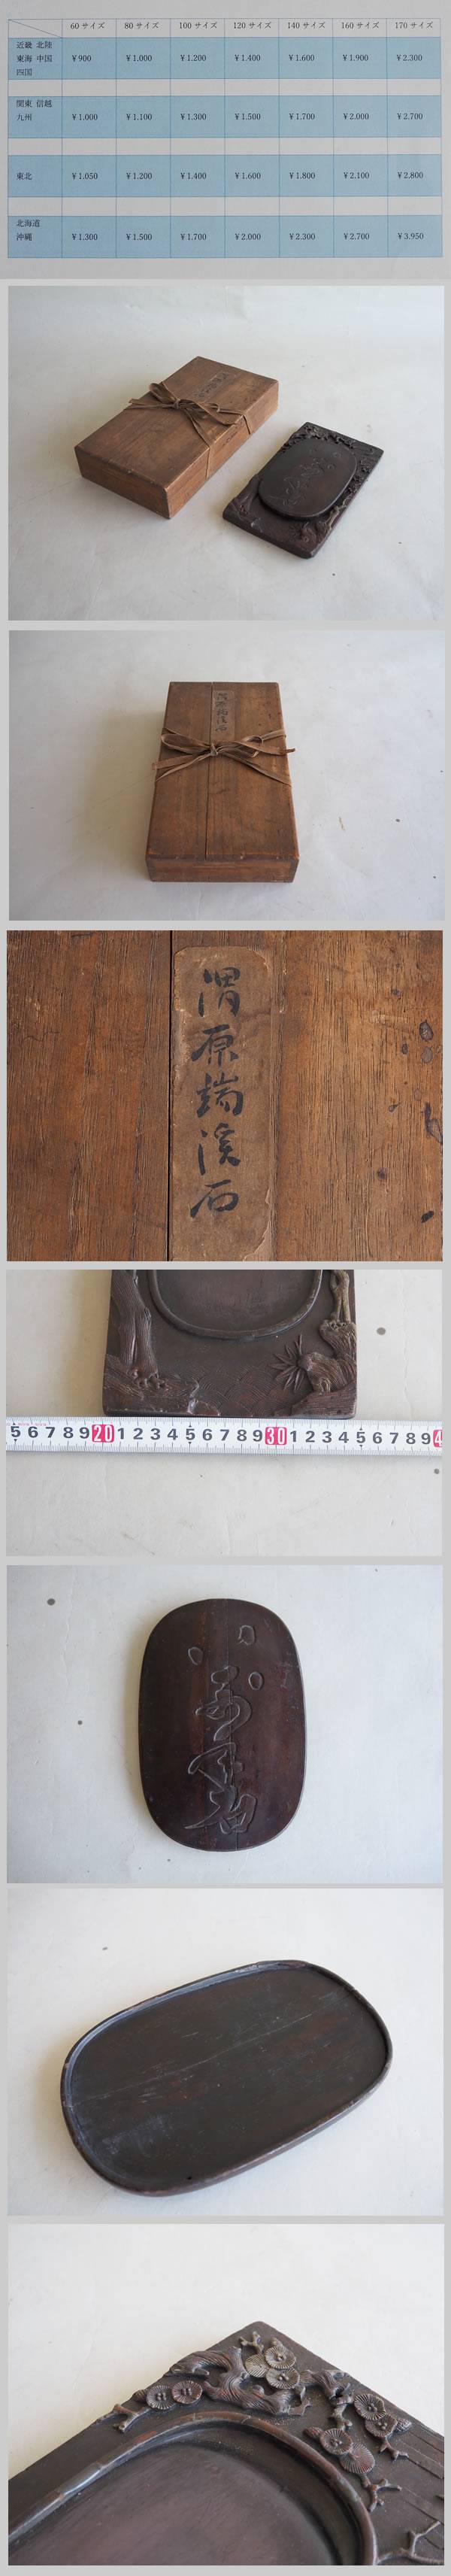 60 サイズ 80 サイズ 100 サイズ 120 サイズ 140 サイズ 160 サイズ 170 サイズ
近畿 北陸
東海 中国 ¥900 ¥1.000 ¥1.200 ¥1.400 ¥1.600 ¥1.900 ¥2.300
四国
関東 信越
九州 ¥1.000 ¥1.100 ¥1.300 ¥1.500 ¥1.700 ¥2.000 ¥2.700
東北 ¥1.050 ¥1.200 ¥1.400 ¥1.600 ¥1.800 ¥2.100 ¥2.800
北海道
沖縄 ¥1.300 ¥1.500 ¥1.700 ¥2.000 ¥2.300 ¥2.700 ¥3.950
渭原端渓石
5 6 7 8 9 20 1 2 3 4 5 6 7 8 9 30 1 2 3 4 5 6 7 8 9 4